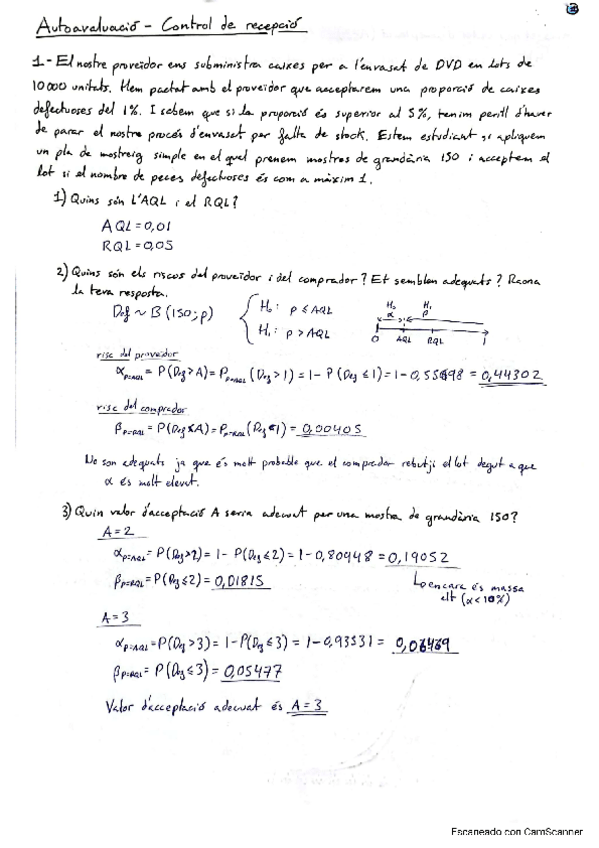 Autoavaluació - Control de recepció
1.- El nostre proveïdor ens subministra caixes per a l'envasat de DVD en lots de
10000 unitats. Hem pactat amb el proveïdor que acceptarem una proporció de caixes
defectuoses del 1%. I sabem que si la proporció és superior al 5%, tenim perill d'haver
de parar el nostre procés d'envasat per falta de stock. Estem estudiant si apliquem
un pla de mostreig simple en el qual prenem mostres de grandària 150 i acceptem el
lot si el nombre de peces defectuoses és com a màxim 1.
1) Quins són l'AQL i el RQL?
AQL = 0,01
RQL = 0,05
2) Quins són els riscos del proveïdor i del comprador? Et semblen adequats? Raona
la teva resposta.
Def ~ B(150; p)
H₀: p ≤ AQL
H₁: p > AQL
H₀ H₁
α β
0 AQL RQL 1
risc del proveïdor
α p=AQL = P(Def > A) = P p=AQL (Def > 1) = 1 - P(Def ≤ 1) = 1 - 0,55698 = 0,44302
risc del comprador
β p=RQL = P(Def ≤ A) = P p=RQL (Def ≤ 1) = 0,00405
No son adequats ja que és molt probable que el comprador rebutji el lot degut a que
α és molt elevat.
3) Quin valor d'acceptació A seria adequat per una mostra de grandària 150?
A = 2
α p=AQL = P(Def > 2) = 1 - P(Def ≤ 2) = 1 - 0,80948 = 0,19052
β p=RQL = P(Def ≤ 2) = 0,01815
↳ encara és massa
alt (α < 10%)
A = 3
α p=AQL = P(Def > 3) = 1 - P(Def ≤ 3) = 1 - 0,93531 = 0,06469
β p=RQL = P(Def ≤ 3) = 0,05477
Valor d'acceptació adequat és A = 3
Escaneado con CamScanner